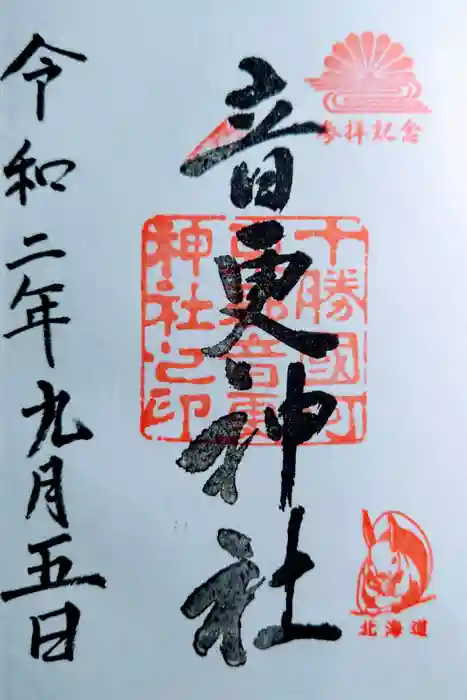 参拝記念
音更神社
十勝國河
音更
神社之印
北海道
令和二年九月五日